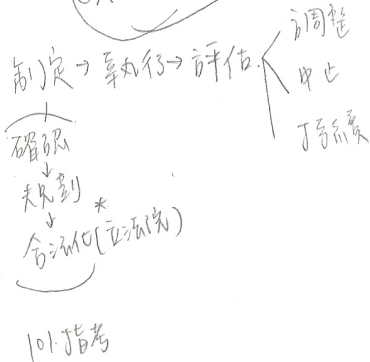 制定→執行→評估
調整
中止
持續
確認
↓
規劃
↓
合法化*(立法院)
101指考